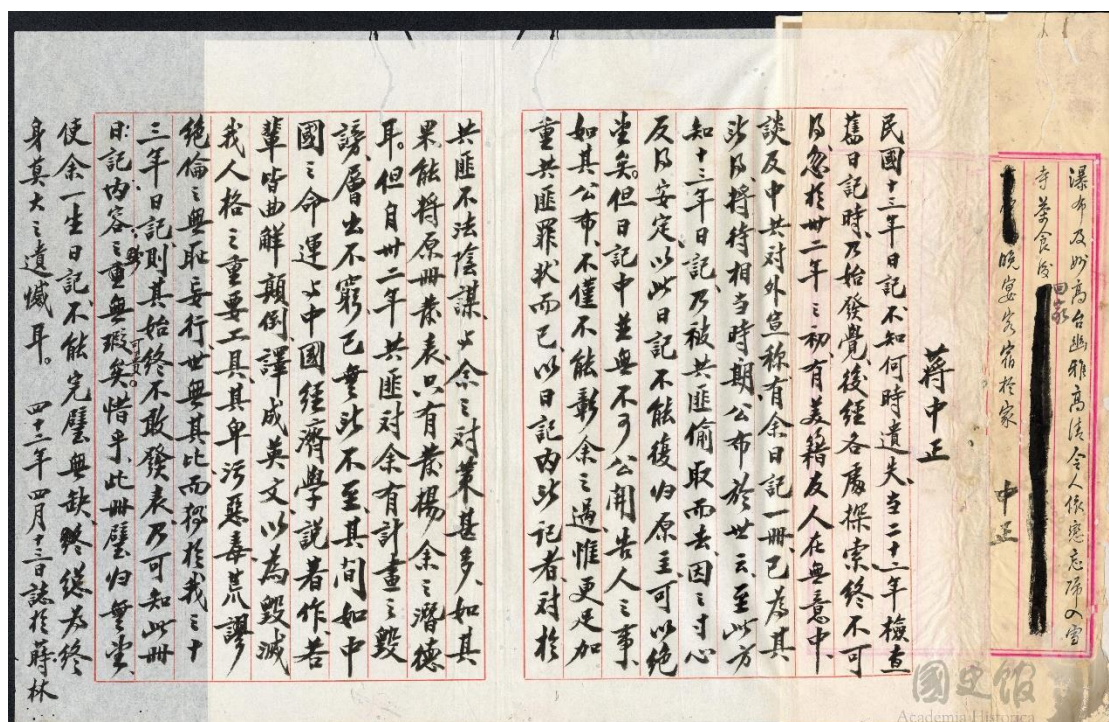 瀑布及妙高台幽雅高清令人依戀忘歸入雪
寺茶食後回家
晚宴客宿於家 中正
蔣中正
民國十三年日記不知何時遺失、当二十一年檢查
舊日記時、乃始發覺、後經各處探索、終不可
得、忽於卅二年之初、有美籍友人在無意中、
談及中共对外宣称有余日記一冊、已為其
所得、將待相当時期公布於世云、至此方
知十三年日記、乃被共匪偷取而去、因之寸心
反得安定、以此日記不能復归原主、可以絕
望矣。但日記中並無不可公開告人之事、
如其公布、不僅不能彰余之過、惟更足加
重共匪罪狀而已、以日記內所記者、对於
共匪不法陰謀、与余之对策甚多、如其
果能將原冊發表、只有發揚余之潛德
耳。但自卅二年共匪对余有計畫之毀
謗、層出不窮、已無所不至、其間如中
國之命運与中國經濟學說著作、若
輩皆曲解顛倒、譯成英文、以為毀滅
我人格之重要工具、其卑污惡毒荒謬
絕倫之無恥妄行、世無其比、而獨於我之十
三年日記、則其始終不敢發表、乃可知此冊
日記內容之重無瑕矣。惜乎、此冊璧归無望、
使余一生日記、不能完璧無缺、終為終
身莫大之遺憾耳。 四十二年四月十三日誌於蒔林
國史館
Academia Historica